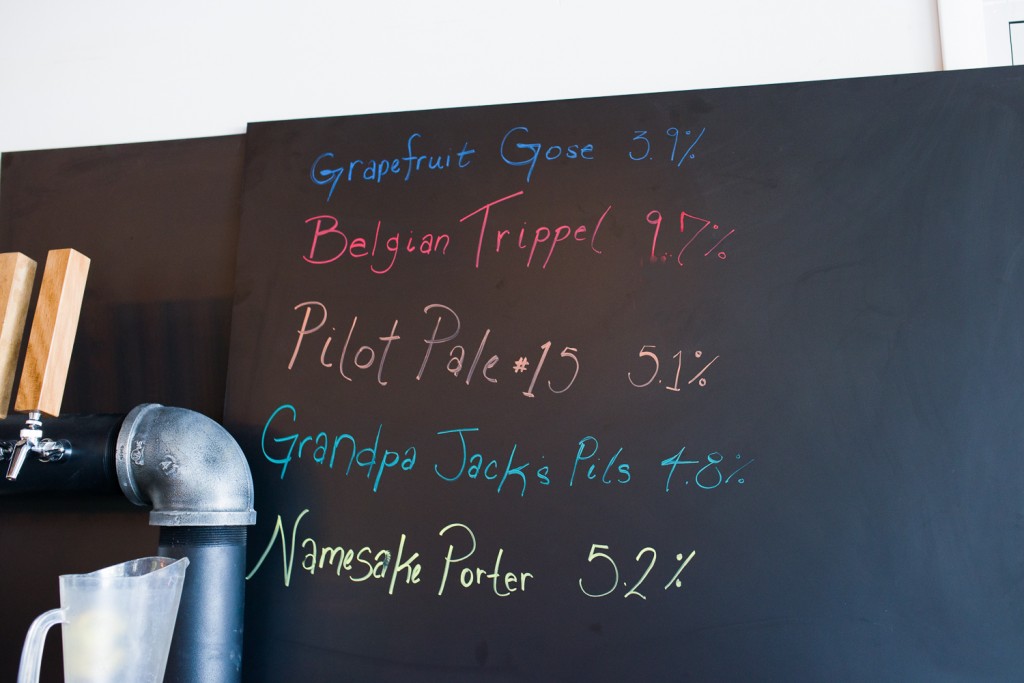 Grapefruit Gose 3.9%
Belgian Trippel 9.7%
Pilot Pale #15 5.1%
Grandpa Jack's Pils 4.8%
Namesake Porter 5.2%